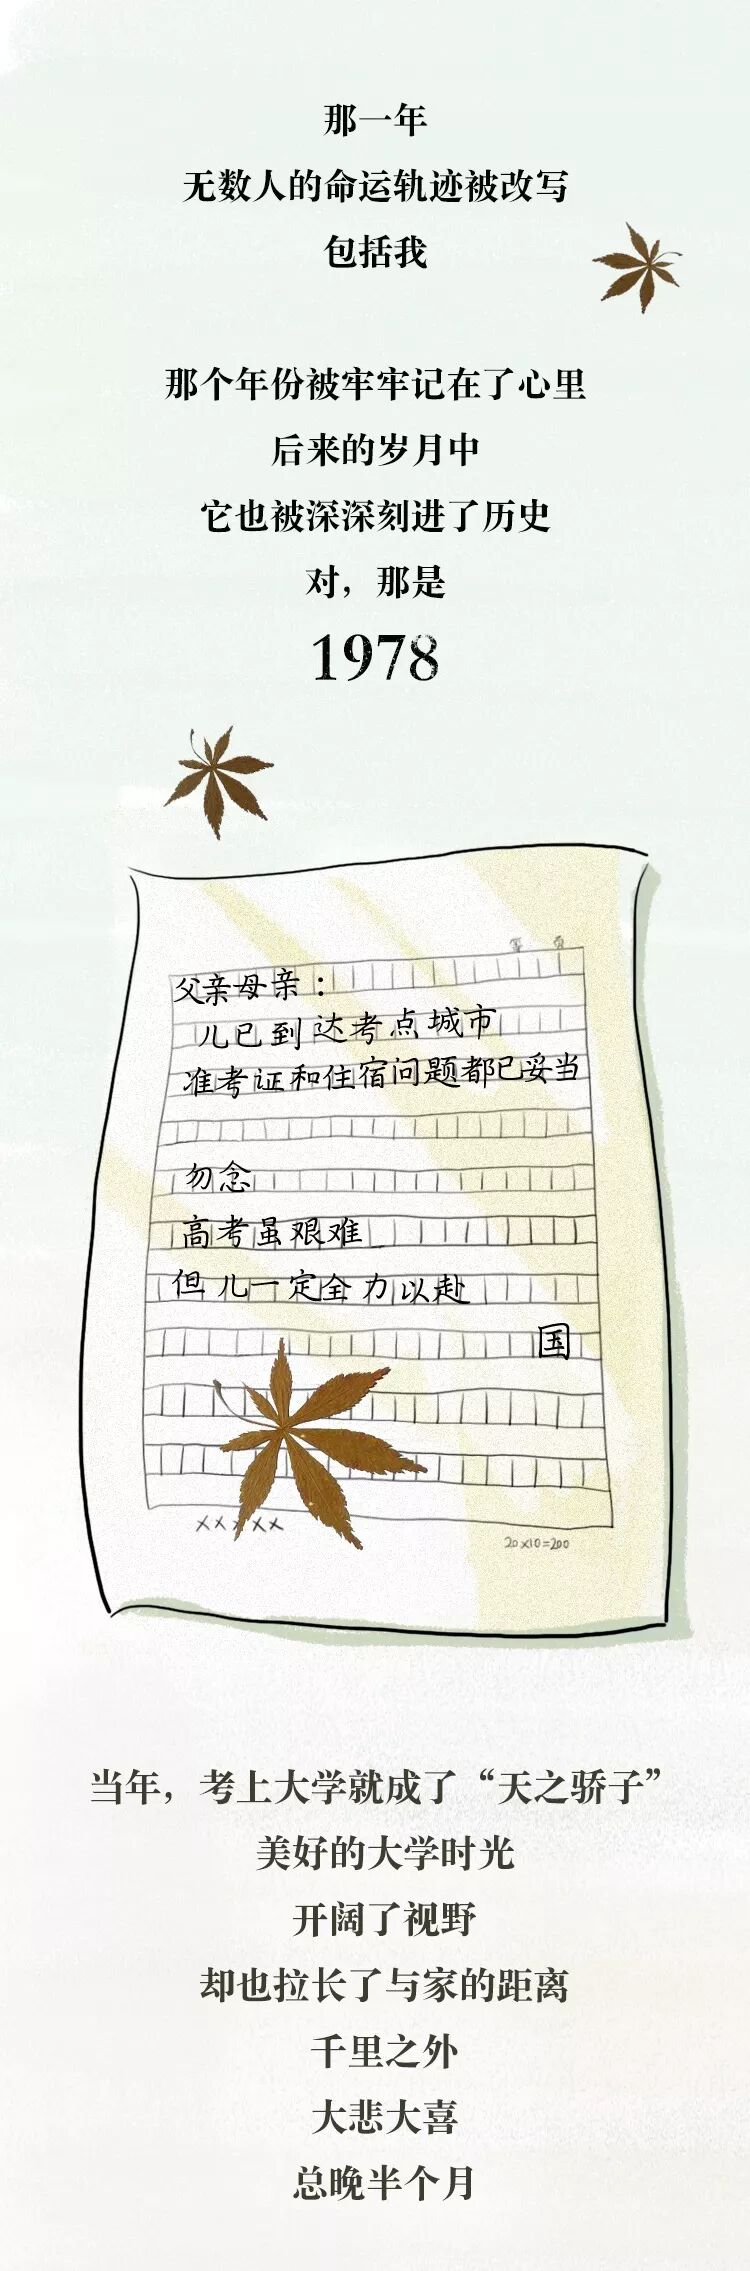 那一年
无数人的命运轨迹被改写
包括我
那个年份被牢牢记在了心里
后来的岁月中
它也被深深刻进了历史
对，那是
1978
第 页
父亲母亲：
儿已到达考点城市
准考证和住宿问题都已妥当
勿念
高考虽艰难
但儿一定全力以赴
国
×××××
20×10=200
当年，考上大学就成了“天之骄子”
美好的大学时光
开阔了视野
却也拉长了与家的距离
千里之外
大悲大喜
总晚半个月